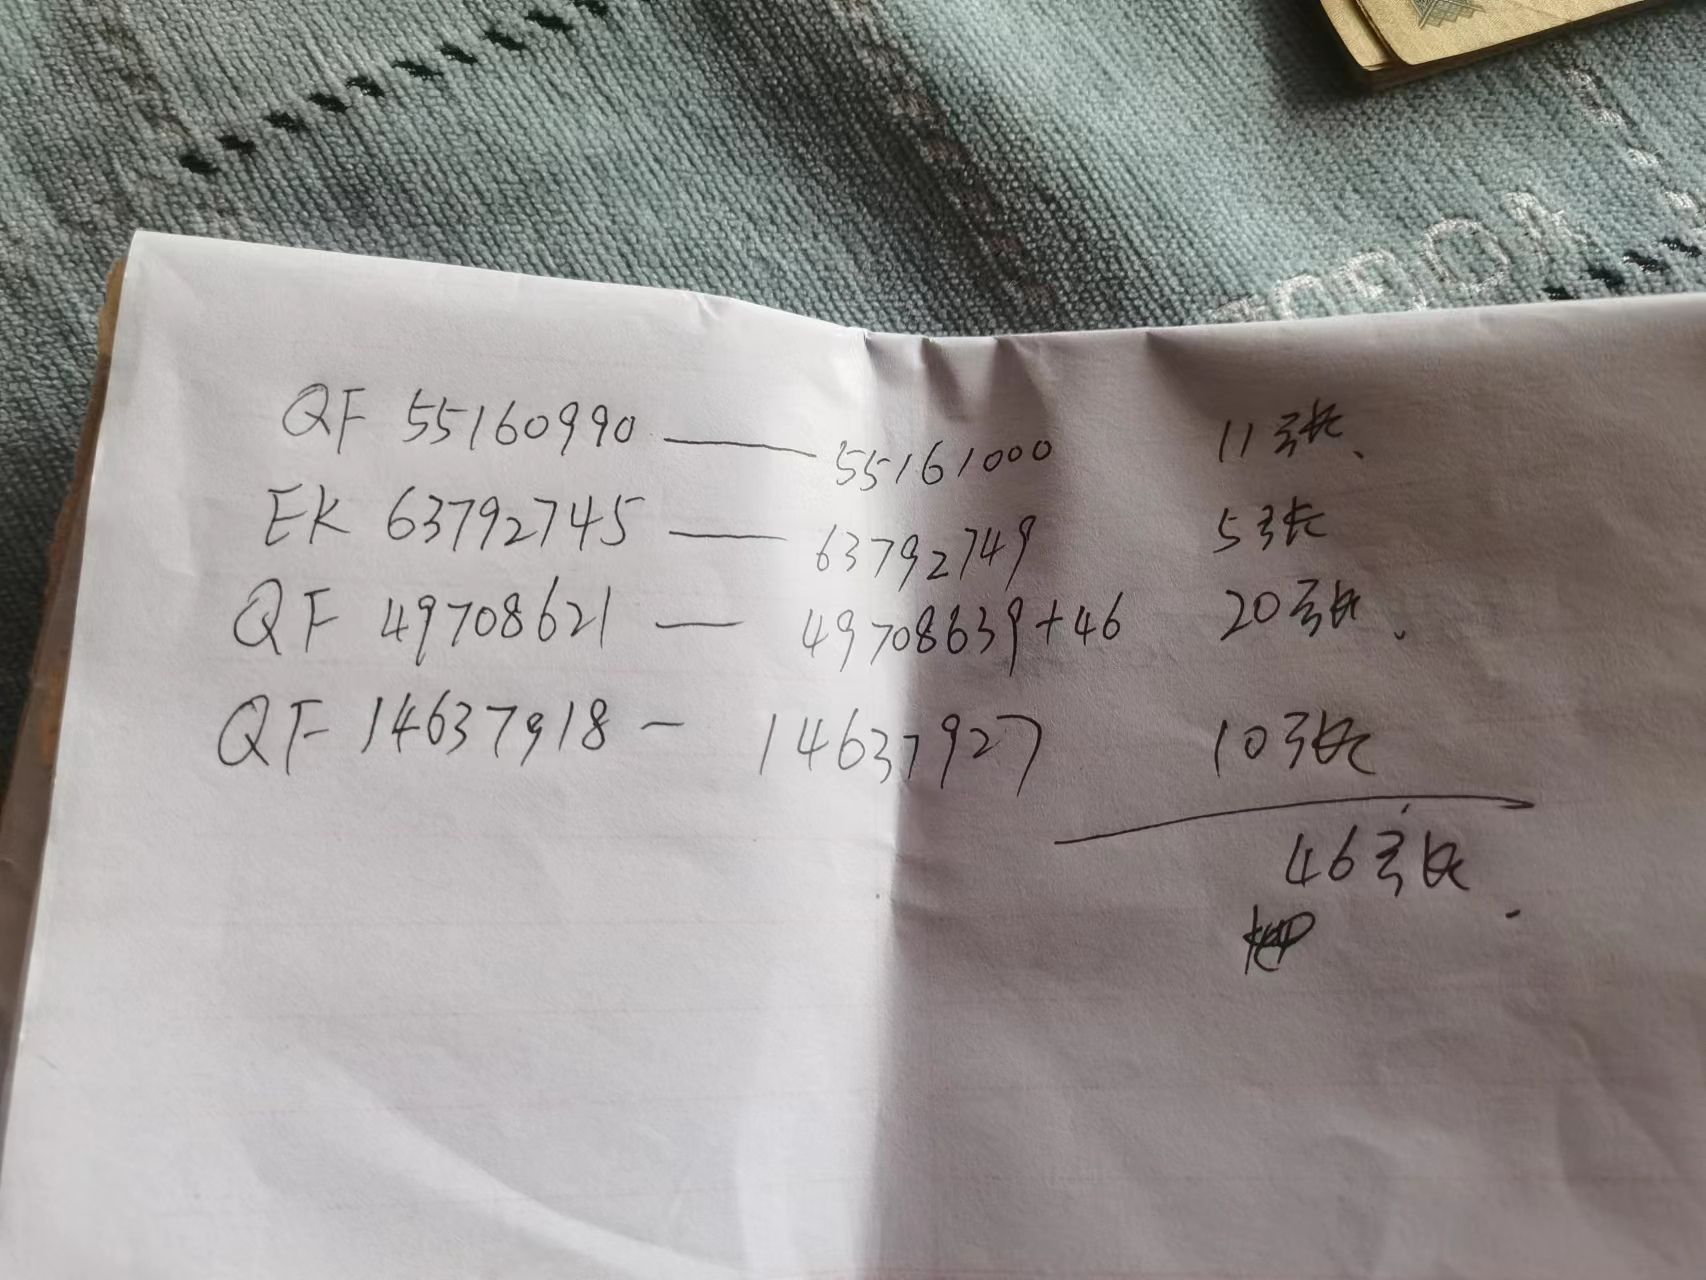 QF 55160990 —— 55161000 11张、
EK 63792745 —— 63792749 5张
QF 49708621 — 49708639+46 20张.
QF 14637918 - 14637927 10张
46张.